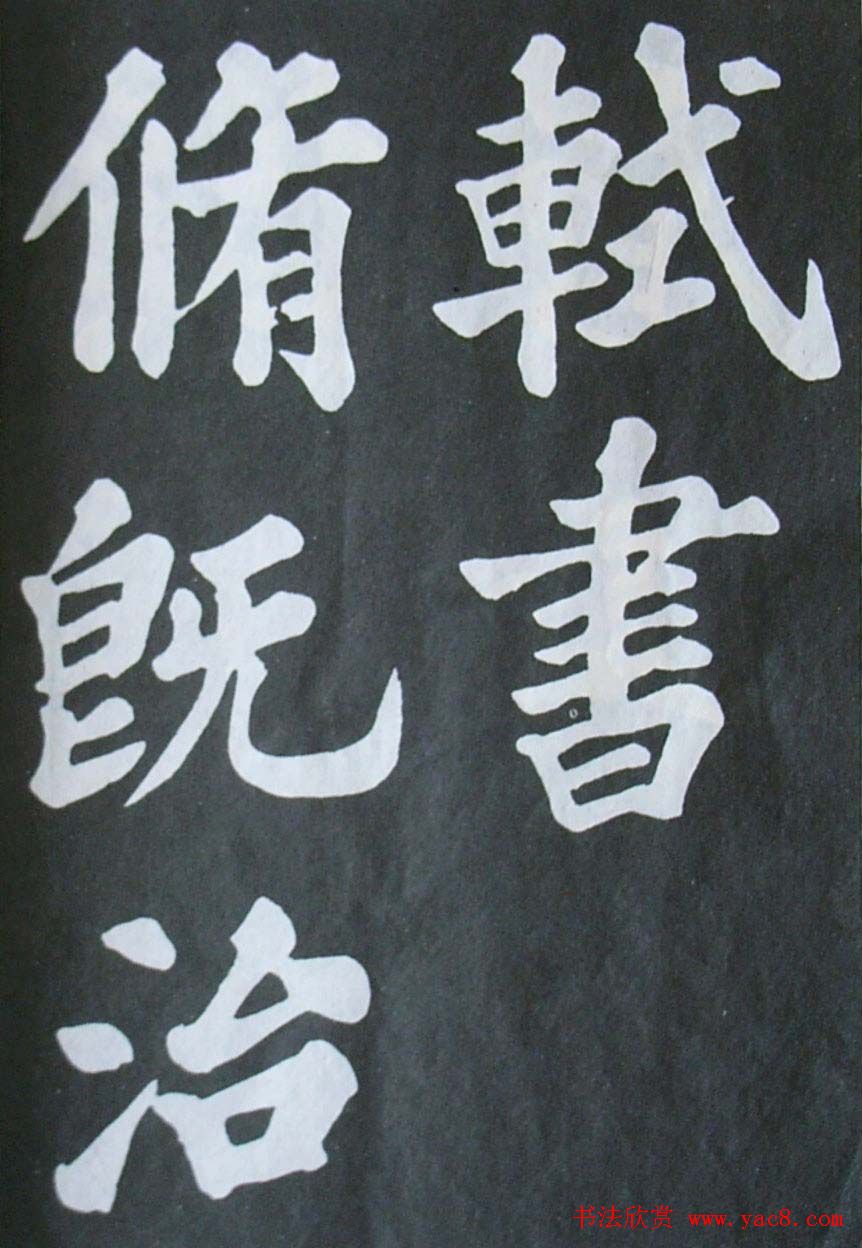 軾書
脩旣治
书法欣赏 www.yac8.com